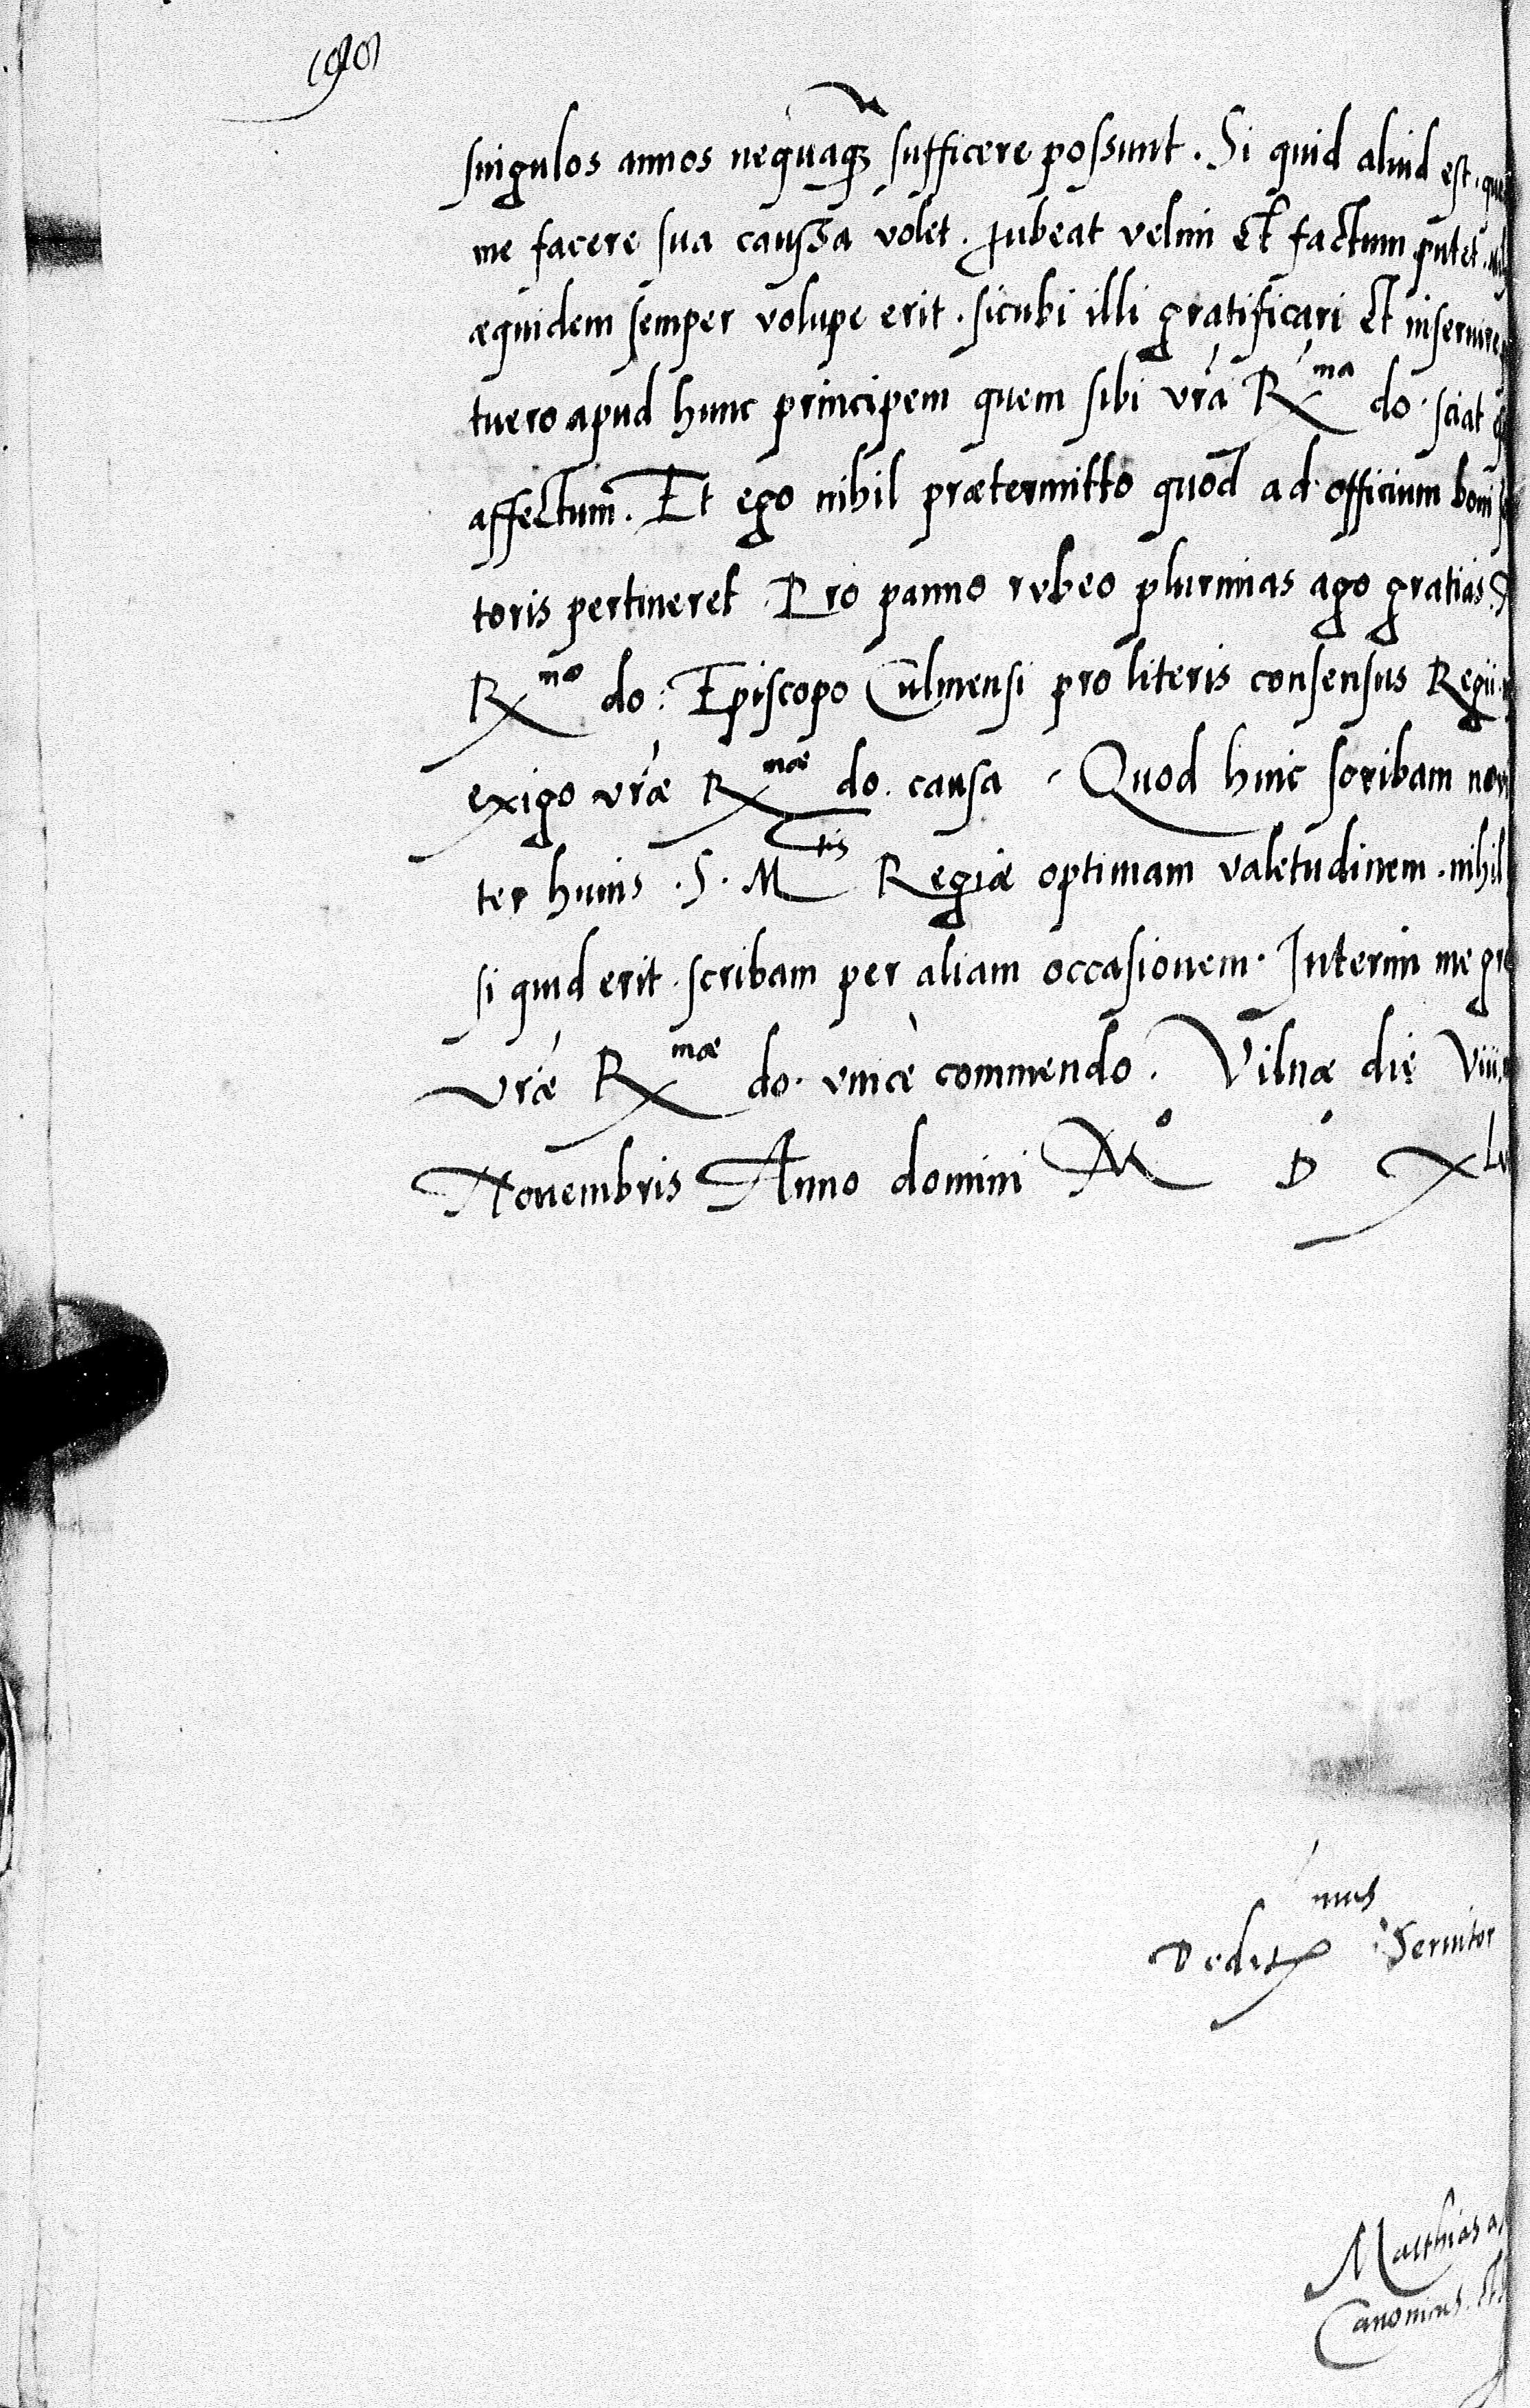 singulos annos nequaq(ue) sufficere possunt. Si quid aliud est.
me facere sua caussa volet. Jubeat velim et factum putet.
æquidem semper volupe erit. sicubi illi gratificari et inservire
tuero apud hunc principem quem sibi vra R ma do. sciat
affectum. Et ego nihil prætermitto quod ad officium boni
toris pertineret Pro panno rubeo plurimas ago gratias.
R mo do: Episcopo Culmensi pro literis consensus Regii.
exigo vræ R mæ do. causa. Quod hinc scribam
ter huius .S. M tis Regiæ optimam valetudinem. nihil
si quid erit. scribam per aliam occasionem. Interim me
vræ R mæ do. unicè commendo. Vilnæ die Viii
Novembris Anno domini M° D° XL
Dedit mus Servitor
Matthias
Canonicus.